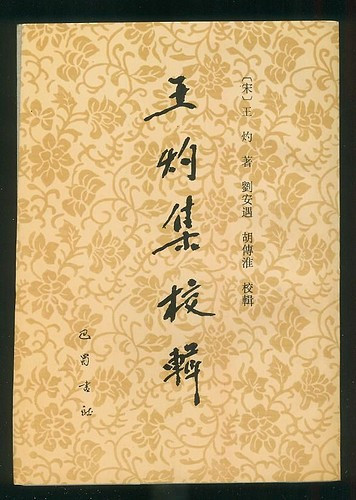 〔宋〕王灼著 劉安遇 胡傳淮 校輯
王灼集校輯
巴蜀書社